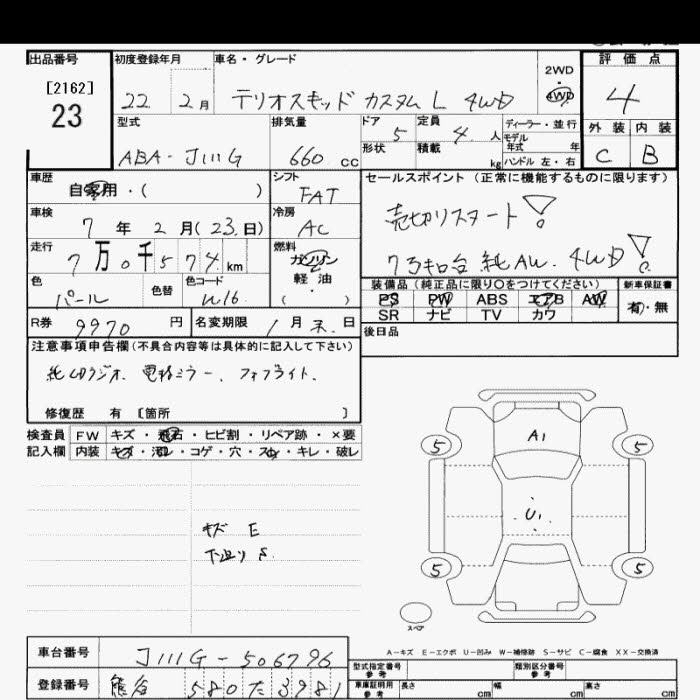 出品番号 初度登録年月 車名・グレード 2WD・4WD 評価点
[2162]
23
22 2月 テリオスキッド カスタム L 4WD 4
型式 排気量 ドア 定員 ディーラー・並行 外装 内装
ABA-J111G 660cc 5 4人 モデル年式 年 C B
形状 積載 kg ハンドル 左・右
車歴 シフト セールスポイント(正常に機能するものに限ります)
自家用・( ) FAT
車検 冷房 売切りスタート!
7年 2月(23日) AC
走行 燃料 7万キロ台 純AW. 4WD!
7万0千574km ガソリン
軽油
( )
色 色替 色コード
パール W16
装備品(純正品に限り○をつけてください) 新車保証書
PS PW ABS エアB AW 有・無
SR ナビ TV カワ
R券 9970円 名変期限 1月末日 後日品
注意事項申告欄(不具合内容等は具体的に記入して下さい)
純CDラジオ. 電格ミラー. フォグライト.
修復歴 有 [箇所 ]
検査員 FW キズ・飛石・ヒビ割・リペア跡・×要
記入欄 内装 キズ・汚レ・コゲ・穴・スレ・キレ・破レ
A1
5 5
U1
5 5
キズ E
下廻り S
スペア
A-キズ E-エクボ U-凹み W-補修跡 S-サビ C-腐食 XX-交換済
車台番号 J111G-506796
型式指定番号 参考 類別区分番号 参考
登録番号 熊谷 580 た 3981
車庫証明用 参考 長さ cm 幅 cm 高さ cm